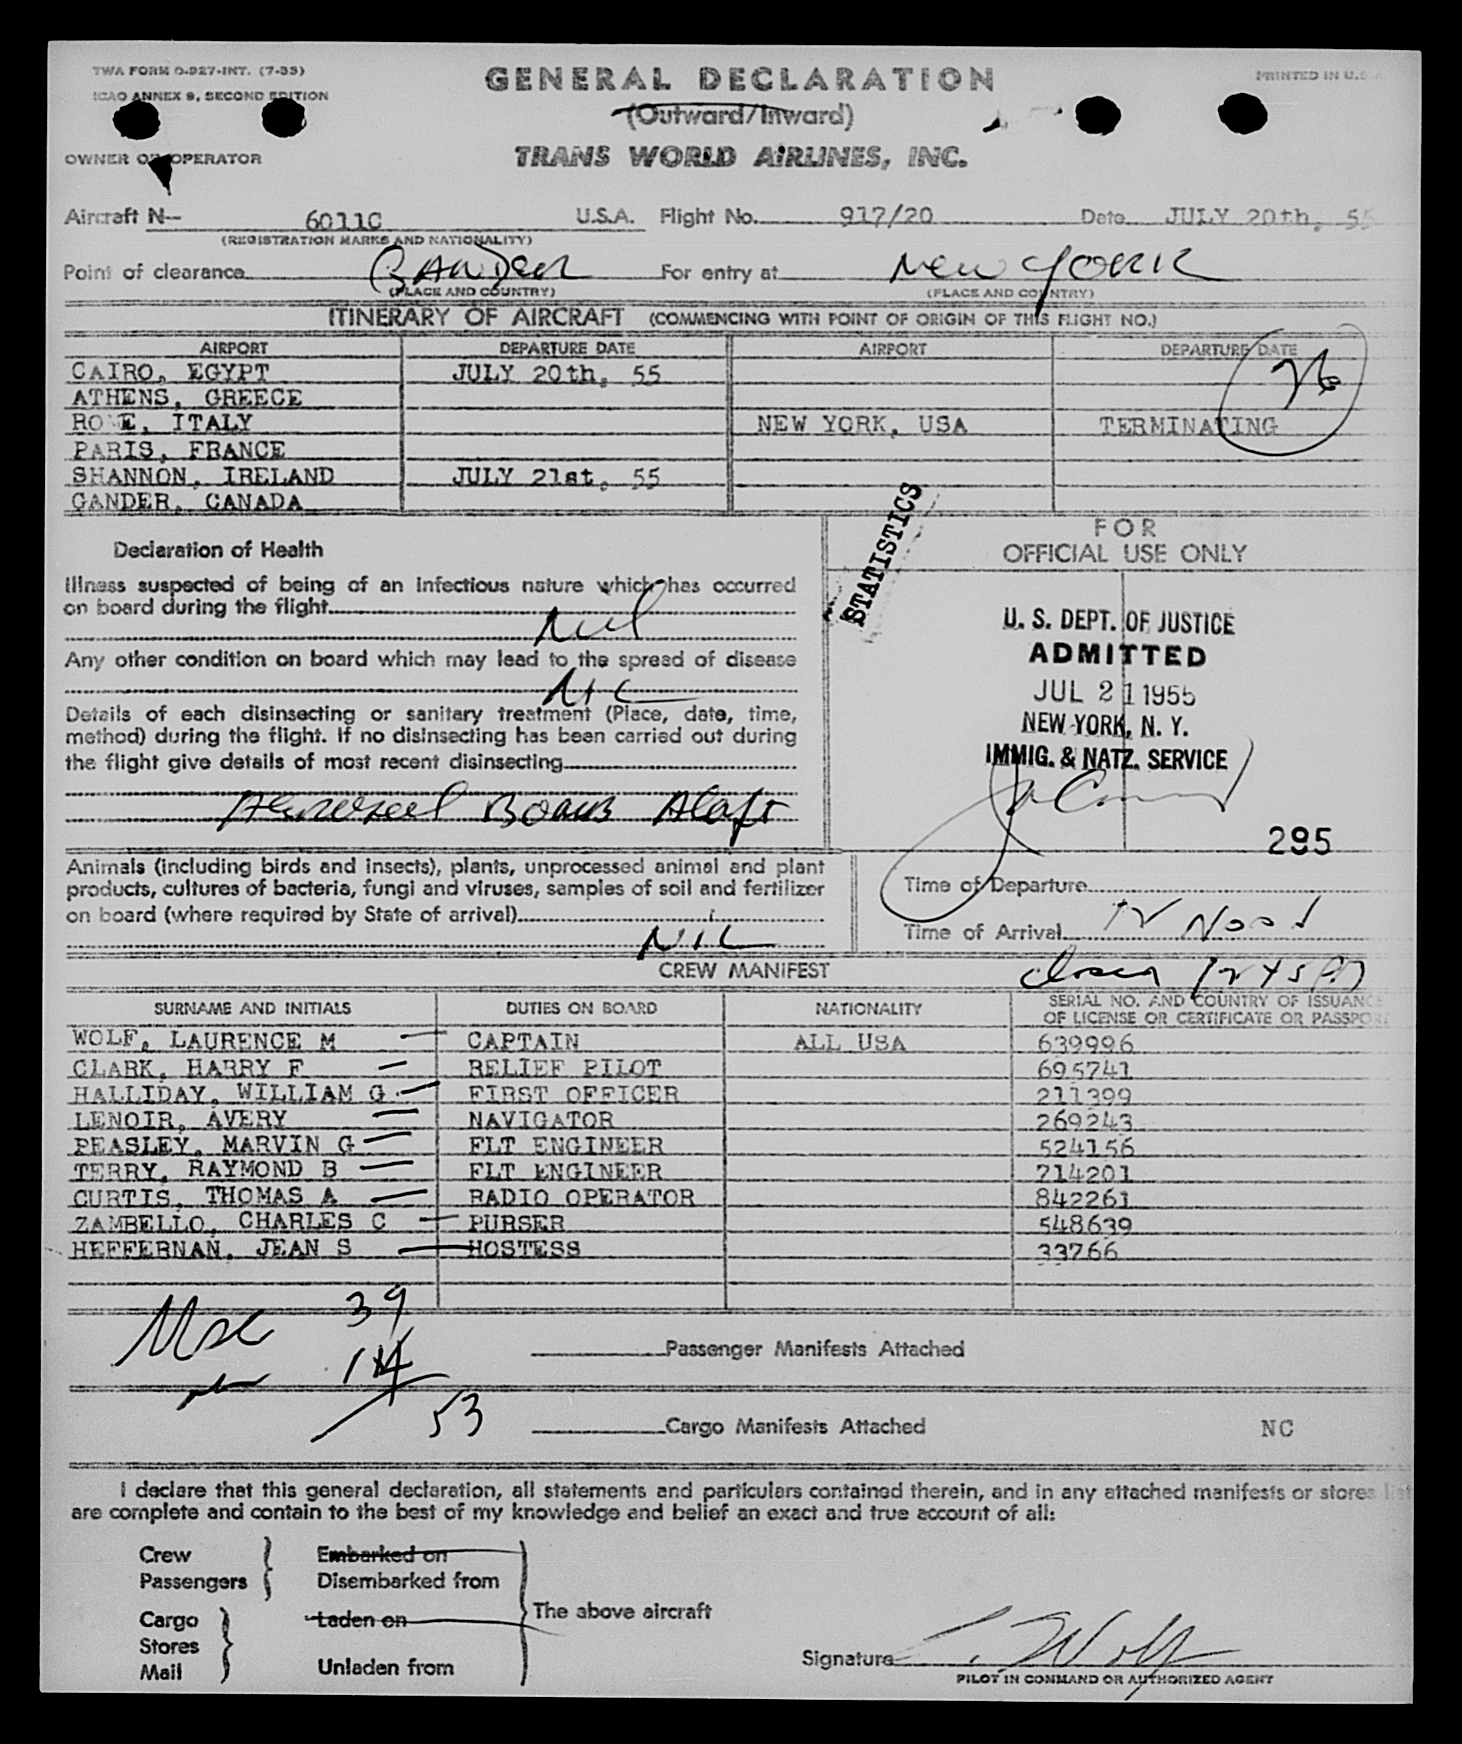 TWA FORM O-927-INT. (7-55)
ICAO ANNEX 9, SECOND EDITION
PRINTED IN U.S.A
GENERAL DECLARATION
(Outward/Inward)
OWNER OR OPERATOR
TRANS WORLD AIRLINES, INC.
Aircraft N- 6011C U.S.A. Flight No. 917/20 Date JULY 20th, 55
(REGISTRATION MARKS AND NATIONALITY)
Point of clearance GANDER For entry at NEW YORK
(PLACE AND COUNTRY) (PLACE AND COUNTRY)
ITINERARY OF AIRCRAFT (COMMENCING WITH POINT OF ORIGIN OF THIS FLIGHT NO.)
AIRPORT DEPARTURE DATE AIRPORT DEPARTURE DATE
CAIRO, EGYPT JULY 20th, 55
ATHENS, GREECE
ROME, ITALY NEW YORK, USA TERMINATING
PARIS, FRANCE
SHANNON, IRELAND JULY 21st, 55
GANDER, CANADA
STATISTICS
FOR
OFFICIAL USE ONLY
Declaration of Health
Illness suspected of being of an infectious nature which has occurred
on board during the flight
Nil
Any other condition on board which may lead to the spread of disease
NIL
Details of each disinsecting or sanitary treatment (Place, date, time,
method) during the flight. If no disinsecting has been carried out during
the flight give details of most recent disinsecting
Aerosol Bombs Aloft
U. S. DEPT. OF JUSTICE
ADMITTED
JUL 21 1955
NEW YORK, N. Y.
IMMIG. & NATZ. SERVICE
295
Animals (including birds and insects), plants, unprocessed animal and plant
products, cultures of bacteria, fungi and viruses, samples of soil and fertilizer
on board (where required by State of arrival)
NIL
Time of Departure
Time of Arrival 12 Noon
CREW MANIFEST
SURNAME AND INITIALS DUTIES ON BOARD NATIONALITY SERIAL NO. AND COUNTRY OF ISSUANCE
OF LICENSE OR CERTIFICATE OR PASSPORT
WOLF, LAURENCE M CAPTAIN ALL USA 639996
CLARK, HARRY F RELIEF PILOT 695741
HALLIDAY, WILLIAM G FIRST OFFICER 211399
LENOIR, AVERY NAVIGATOR 269243
PEASLEY, MARVIN G FLT ENGINEER 524156
TERRY, RAYMOND B FLT ENGINEER 714201
CURTIS, THOMAS A RADIO OPERATOR 842261
ZAMBELLO, CHARLES C PURSER 548639
HEFFERNAN, JEAN S HOSTESS 33766
39
14
53
Passenger Manifests Attached
Cargo Manifests Attached NC
I declare that this general declaration, all statements and particulars contained therein, and in any attached manifests or stores list
are complete and contain to the best of my knowledge and belief an exact and true account of all:
Crew Embarked on
Passengers Disembarked from
The above aircraft
Cargo Laden on
Stores
Mail Unladen from
Signature L. Wolf
PILOT IN COMMAND OR AUTHORIZED AGENT